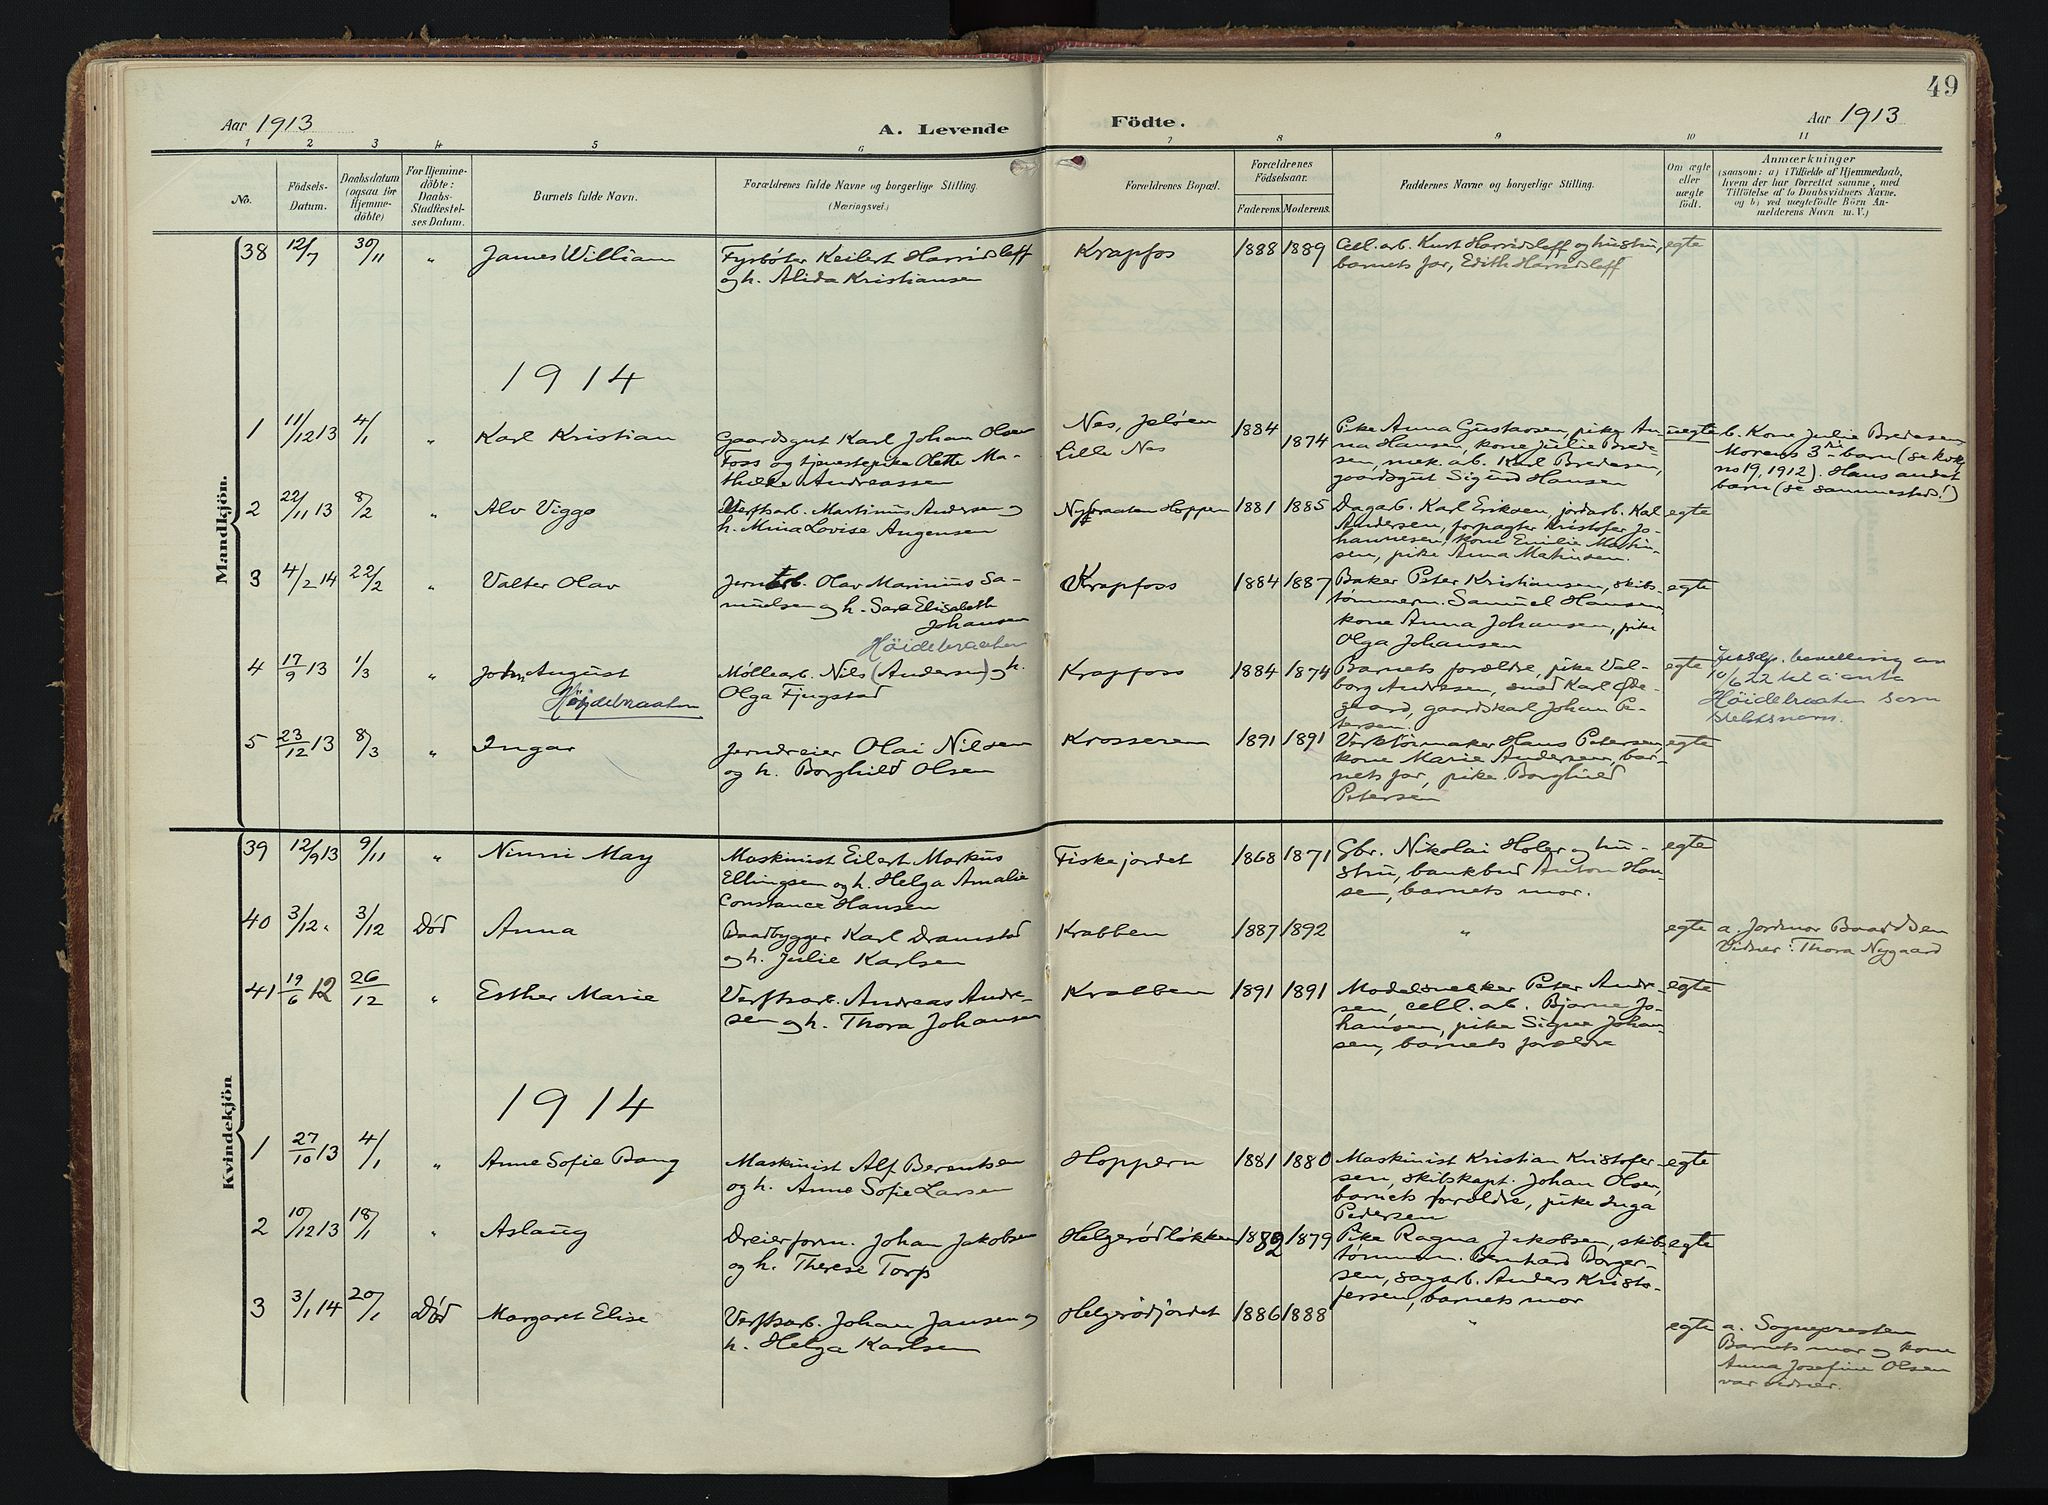 49
Aar 1913
A. Levende
Födte.
Aar 1913
1 2 3 4 5 6 7 8 9 10 11
No.
Födsels-
Datum.
Daabsdatum
(ogsaa for
Hjemme-
döbte)
For Hjemme-
döbte:
Daabs-
Stadfæstel-
ses Datum.
Barnets fulde Navn.
Forældrenes fulde Navne og borgerlige Stilling.
(Næringsvei.)
Forældrenes Bopæl.
Forældrenes
Födselsaar.
Faderens. Moderens.
Faddernes Navne og borgerlige Stilling.
Om ægte
eller
uægte
födt.
Anmærkninger
(saasom: a) i Tilfælde af Hjemmedaab,
hvem der har forrettet samme, med
Tilföielse af to Daabsvidners Navne.
og b) ved uægtefödte Börn An-
melderens Navn m. V.)
Mandkjön.
38 12/7 30/11 " James William
Fyrbøter Keilert Harridsleff
og h. Alida Kristiansen
Krapfos 1888 1889
Cell. arb. Kurt Harridsleff og hustru,
barnets far, Edith Harridsleff
egte
1914
1 11/12 13 4/1 " Karl Kristian
Gaardsgut Karl Johan Olsen
Foss og tjenestepike Olette Ma-
thilde Andreassen
Nes, Jeløen
Lille Nes
1884
1874
Pike Anna Gustavsen, pike An-
na Hansen, kone Julie Brede-
sen, mek. arb. Karl Bredesen,
gaardsgut Sigurd Hansen
uegte
b. Kone Julie Bredesen
Morens 3die barn (se
no 19, 1912). Hans andet
barn (se sammesteds!)
2 22/11 13 8/2 " Alv Viggo
Verftsarb. Martinus Andersen og
h. Mina Lovise Augensen
Nybraaten Hoppern 1881 1885
Dagarb. Karl Eriksen, jordarb. Kal
Andersen, forpagter Kristofer Jo-
hannesen, kone Emilie Mathi-
sen, pike Anna Mathisen.
egte
3 4/2 14 22/2 " Valter Olav
Jernarb. Olav Marinius Sa-
muelsen og h. Sara Elisabeth
Johansen
Krapfoss 1884 1887
Baker Peter Kristiansen, skibs-
tømmerm. Samuel Hansen
kone Anna Johansen, pike
Olga Johansen
egte
4 17/9 13 1/3 " John August
Høidebraaten
Høidebraaten
Møllearb. Nils (Andersen) og h.
Olga Fjugstad
Krapfoss 1884 1874
Barnets forældre, pike Val-
borg Andresen, smed Karl Øde-
gaard, gaardskarl Johan Pe-
tersen
egte
bevilling av
10/6 22 til å anta
Høidebraaten som
slektsnavn.
5 23/12 13 8/3 " Ingar
Jerndreier Olai Nilsen
og h. Borghild Olsen
Krosserem 1891 1891
Verktøimaker Hans Petersen,
kone Marie Andersen, bar-
nets far, pike Borghild
Petersen
egte
Kvindekjön
39 12/9 13 9/11 " Ninni May
Maskinist Eilert Markus
Ellingsen og h. Helga Amalie
Constance Hansen
Fiskejordet 1868 1871
Gbr. Nikolai Holer og hu-
stru, bankbud Anton Han-
sen, barnets mor.
egte
40 3/12 " 3/12 Død Anna
Baadbygger Karl Dramstad
og h. Julie Karlsen
Krabben 1887 1892
"
egte
a. Jordmor Baardsen
Vidner: Thora Nygaard
41 19/6 12 26/12 " Esther Marie
Verftsarb. Andreas Andre-
sen og h. Thora Johansen
Krabben 1891 1891
Modelsnekker Peter Andre-
sen, cell. arb. Bjarne Jo-
hansen, pike Signe Johan-
sen, barnets forældre
egte
1914
1 27/10 13 4/1 " Anne Sofie Bang
Maskinist Alf Berentsen
og h. Anne Sofie Larsen
Hoppern 1881 1880
Maskinist Kristian Kristofer-
sen, skibskapt. Johan Olsen,
barnets forældre, pike Inga
Pedersen
egte
2 10/12 13 18/1 " Aslaug
Dreierform. Johan Jakobsen
og h. Therese Torp
Helgerødløkken 1882 1879
Pike Ragna Jakobsen, skibs-
tømmerm. Bernhard Borger-
sen, sagarb. Anders Kristo-
fersen, barnets mor
egte
3 3/1 14 20/1 Død Margaret Elise
Verftsarb. Johan Jansen og
h. Helga Karlsen
Helgerødjordet 1886 1888
"
egte
a. Sognepresten
Barnets mor og kone
Anna Josefine Olsen
var vidner.